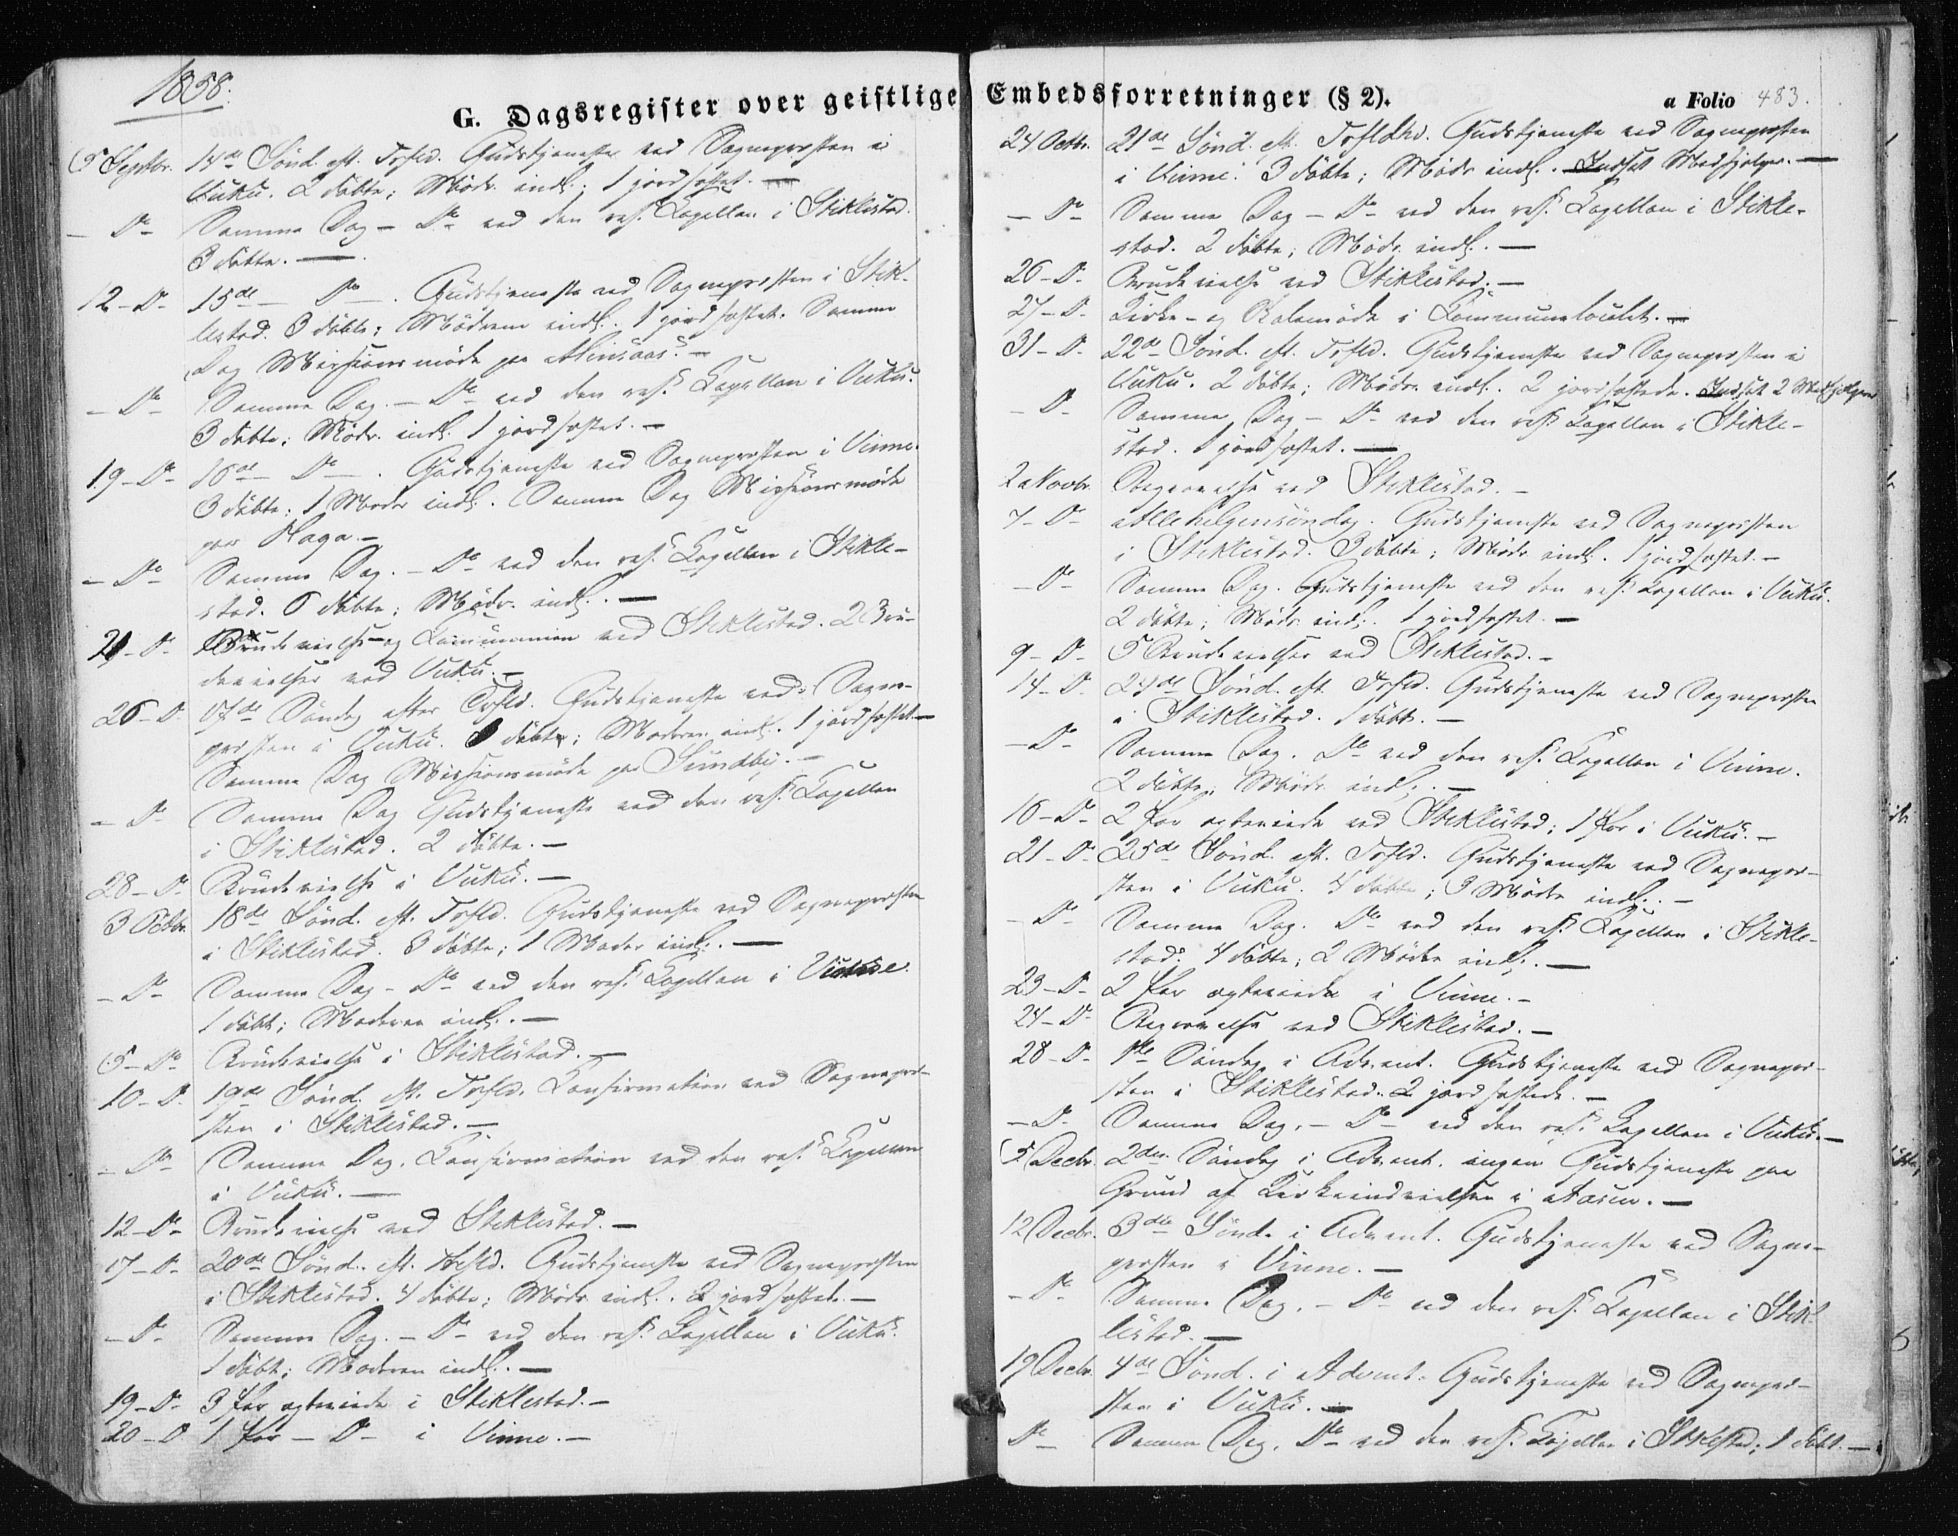 1858.
G. Dagsregister over geistlige Embedsforretninger (§ 2). a Folio 483.
5 Septbr. 14de Sönd. eft. Trefld. Gudstjeneste ved Sognepresten i
Vuku. 2 döbte; Mödr. indl.; 1 jordfæstet. —
— Do — Samme Dag — Do ved den res. Capellan i Stiklestad.
3 döbte. —
12 — Do — 15de — Do —. Gudstjeneste ved Sognepresten i Stik-
lestad. 3 döbte; Mödrene indl. 1 jordfæstet. Samme
Dag Missionsmöde paa Minsaas. —
— Do — Samme Dag. — Do ved den res. Capellan i Vuku.
3 döbte; Mödr. indl. 1 jordfæstet. —
19 — Do 16de — Do —. Gudstjeneste ved Sognepresten i Vinne.
3 döbte; 1 Moder indl. Samme Dag Missionsmöde
paa Haga. —
— Do — Samme Dag. — Do ved den res. Capellan i Stikle-
stad. 6 döbte; Mödr. indl. —
21 — D. Brudevielse og Communion ved Stiklestad. 2 Bru-
devielser ved Vuku. —
26 — D. 17de Söndag efter Trefld. Gudstjeneste ved Sogne-
presten i Vuku. 1 döbt; Moderen indl. 1 jordfæstet —
Samme Dag Missionsmöde paa Sundby. —
— Do — Samme Dag Gudstjeneste ved den res. Capellan
i Stiklestad. 2 döbte. —
28 — D. Brudevielse i Vuku. —
3 Octbr. 18de Sönd. eft. Trefld. Gudstjeneste ved Sognepresten
i Stiklestad. 3 döbte; 1 Moder indl. —
— Do — Samme Dag — Do ved den res. Capellan i Vinne.
1 döbt; Moderen indl. —
5 — Do Brudevielse i Stiklestad. —
10 — D. 19de Sönd. eft. Trefld. Confirmation ved Sognepre-
sten i Stiklestad. —
— Do — Samme Dag. Confirmation ved den res. Capellan
i Vuku. —
12 — Do Brudevielse ved Stiklestad. —
17 — D. 20de Sönd. eft. Trefld. Gudstjeneste ved Sognepresten
i Stiklestad. 4 döbte; Mödr. indl. 2 jordfæstet. —
— Do — Samme Dag. — Do — ved den res. Capellan i Vuku.
1 döbt; Moderen indl. —
19 — D. 3 Par ægteviede i Stiklestad. —
20 — D 1 Par — D — i Vinne. —
24 Octbr. 21de Sönd. eft. Trefldhd. Gudstjeneste ved Sognepresten
i Vinne. 3 döbte; Mödr. indl. Indsat Medhjelper. —
— Do — Samme Dag — Do ved den res. Capellan i Stikle-
stad. 2 döbte; Mödr. indl. —
26 — D. Brudevielse ved Stiklestad. —
27 — D. Kirke- og Skolemöde i Communelocalet. —
31 — D. 22de Sönd. eft. Trefld. Gudstjeneste ved Sognepresten i
Vuku. 2 döbte; Mödr. indl. 2 jordfæstede. Indsat 2 Medhjelpere
— D. Samme Dag — Do — ved den res. Capellan i Stikle-
stad. 1 jordfæstet. —
2 Novbr. Begravelse ved Stiklestad. —
7 — Do Allehelgensöndag. Gudstjeneste ved Sognepresten
i Stiklestad. 3 döbte; Mödr. indl. 1 jordfæstet. —
— Do Samme Dag. Gudstjeneste ved den res. Capellan i Vuku.
2 döbte; Mödr. indl. 1 jordfæstet. —
9 — D. 5 Brudevielser ved Stiklestad. —
14 — D. 24de Sönd. eft. Trefld. Gudstjeneste ved Sognepresten
i Stiklestad. 1 döbt. —
— Do — Samme Dag. Do ved den res. Capellan i Vinne.
2 döbte; Mödr. indl. —
16 — D. 2 Par ægteviede ved Stiklestad; 1 Par i Vuku. —
21 — D. 25de Sönd. eft. Trefld. Gudstjeneste ved Sognepre-
sten i Vuku. 4 döbte; 3 Mödre indl. —
— Do Samme Dag. Do ved den res. Capellan i Stikle-
stad. 4 döbte; 2 Mödre indl. —
23 — D. 2 Par ægteviede i Vinne. —
24 — D. Begravelse ved Stiklestad. —
28 — D. 1ste Söndag i Advent. Gudstjeneste ved Sognepre-
sten i Stiklestad. 2 jordfæstede. —
— D. Samme Dag. — Do — ved den res. Capellan i Vuku. —
5 Decbr. 2den Söndag i Advent. ingen Gudstjeneste paa
Grund af Kirkeindvielsen i Aasen. —
12 Decbr. 3die Sönd. i Advent. Gudstjeneste ved Sogne-
presten i Vinne. —
— Do Samme Dag. — Do ved den res. Capellan i Stik-
lestad. —
19 Decbr. 4de Sönd. i Advent. Gudstjeneste ved Sognepre-
sten i Vuku. —
Do — Samme Dag. Do ved den res. Capellan i Stiklestad; 1 döbt. —